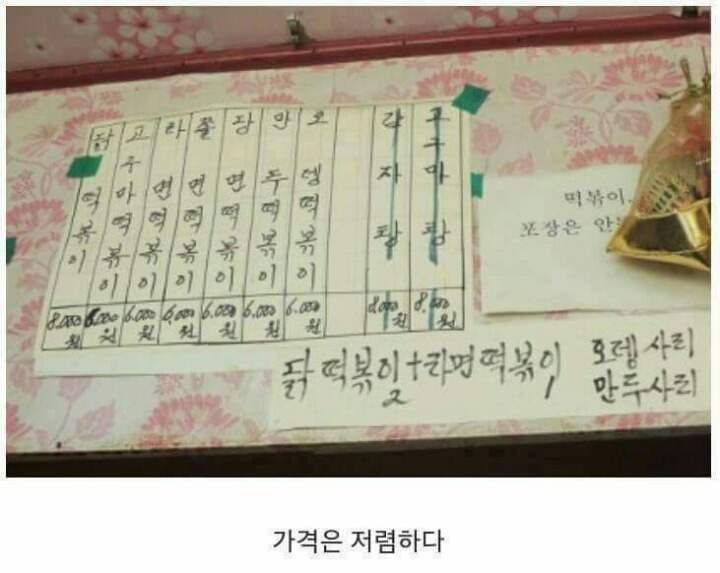 닭떡볶이 8,000원
고구마떡볶이 6,000원
라면떡볶이 6,000원
쫄면떡볶이 6,000원
당면떡볶이 6,000원
만두떡볶이 6,000원
오뎅떡볶이 6,000원
감자탕 8,000원
고구마탕 8,000원
떡볶이.
포장은
닭떡볶이2+라면떡볶이1
오뎅사리
만두사리
가격은 저렴하다